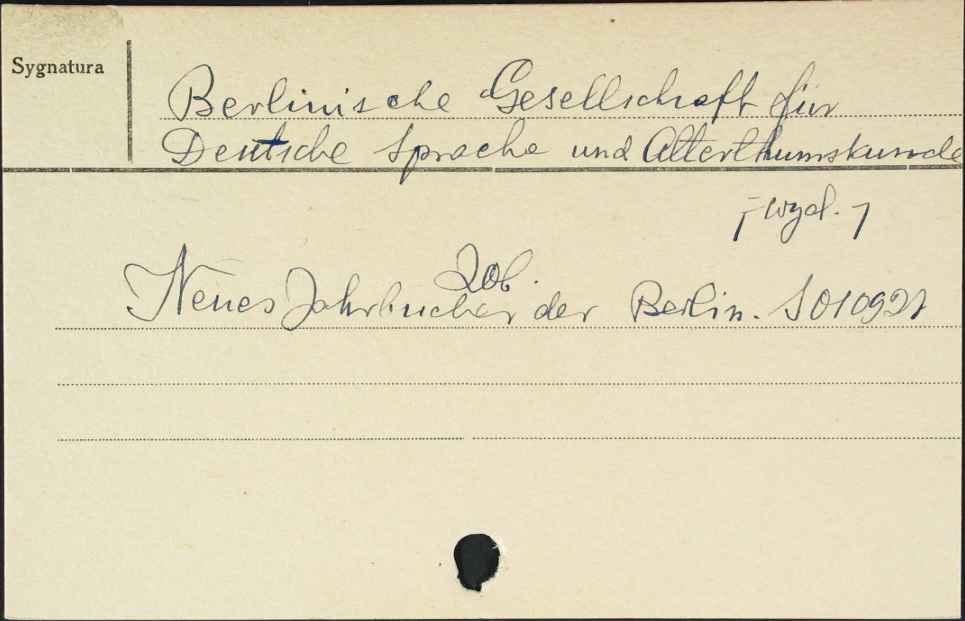 Sygnatura
Berlinische Gesellschaft für
Deutsche Sprache und Alterthumskunde
[wyd.]
Zob.
Neues Jahrbucher der Berlin. S010921